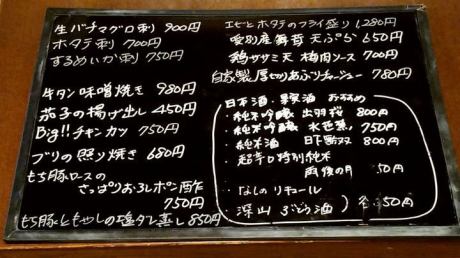 生バチマグロ刺 900円
ホタテ刺 700円
するめいか刺 750円
牛タン味噌焼き 980円
茄子の揚げ出し 450円
Big!!チキンカツ 750円
ブリの照り焼き 680円
もち豚ロースの
さっぱりおろしポン酢
750円
もち豚ともやしの塩ダレ蒸し 850円
エビとホタテのフライ盛り 1,280円
愛別産舞茸天ぷら 650円
鶏ササミ天 梅肉ソース 700円
自家製厚切りあぶりチャーシュー 780円
日本酒・果実酒 おすすめ
・純米吟醸 出羽桜 800円
・純米吟醸 水芭蕉 750円
・純米酒 日下無双 800円
・超辛口特別純米
雨後の月 50円
・なしのリキュール
・深山ぶどう酒 各 50円